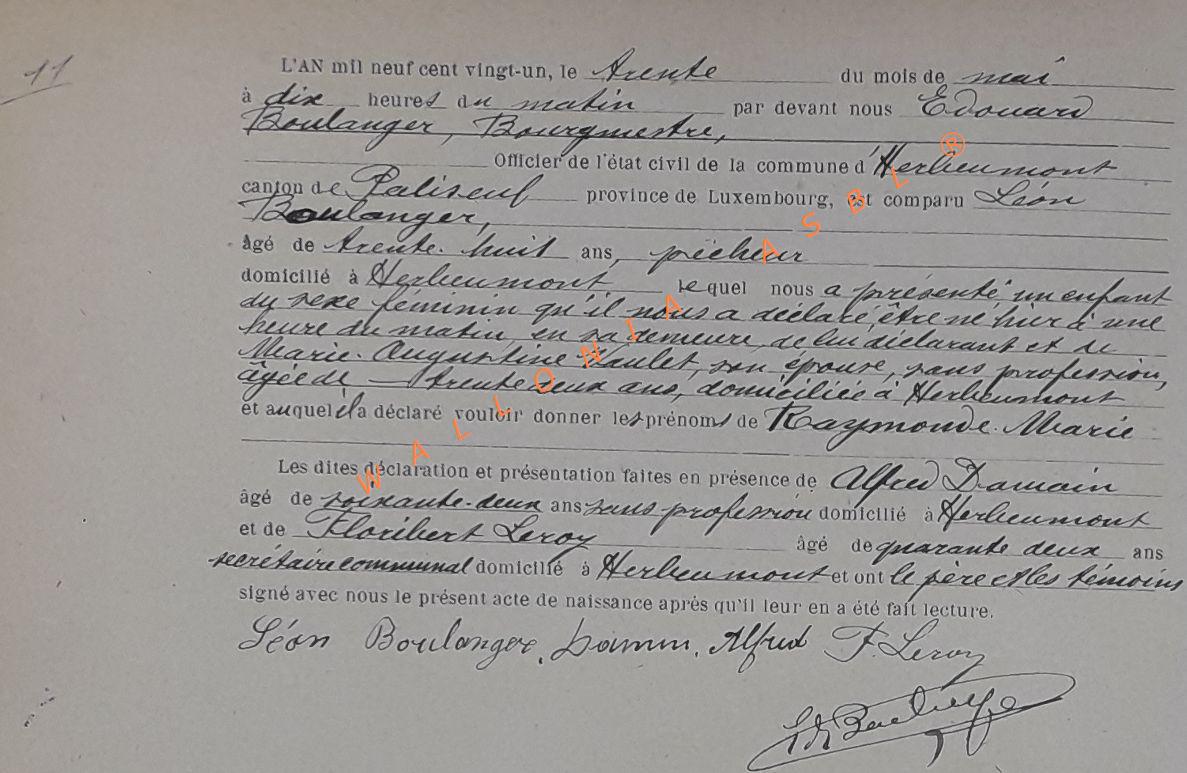 11
L'AN mil neuf cent vingt-un, le trente du mois de mai
à dix heures du matin par devant nous Édouard
Boulanger, Bourgmestre,
Officier de l'état civil de la commune d'Herbeumont
canton de Paliseul province de Luxembourg, est comparu Léon
Boulanger,
âgé de trente-huit ans, pêcheur
domicilié à Herbeumont lequel nous a présenté un enfant
du sexe féminin qu'il nous a déclaré être né hier à une
heure du matin, en sa demeure, de lui déclarant et de
Marie-Augustine, son épouse, sans profession,
âgée de trente-deux ans, domiciliée à Herbeumont
et auquel il a déclaré vouloir donner les prénoms de Raymonde-Marie
Les dites déclaration et présentation faites en présence de Alfred Damain
âgé de soixante-deux ans sans profession domicilié à Herbeumont
et de Floribert Leroy âgé de quarante deux ans
secrétaire communal domicilié à Herbeumont et ont le père et les témoins
signé avec nous le présent acte de naissance après qu'il leur en a été fait lecture.
Léon Boulanger. Alfred F. Leroy
WALLONIA ASBL ®